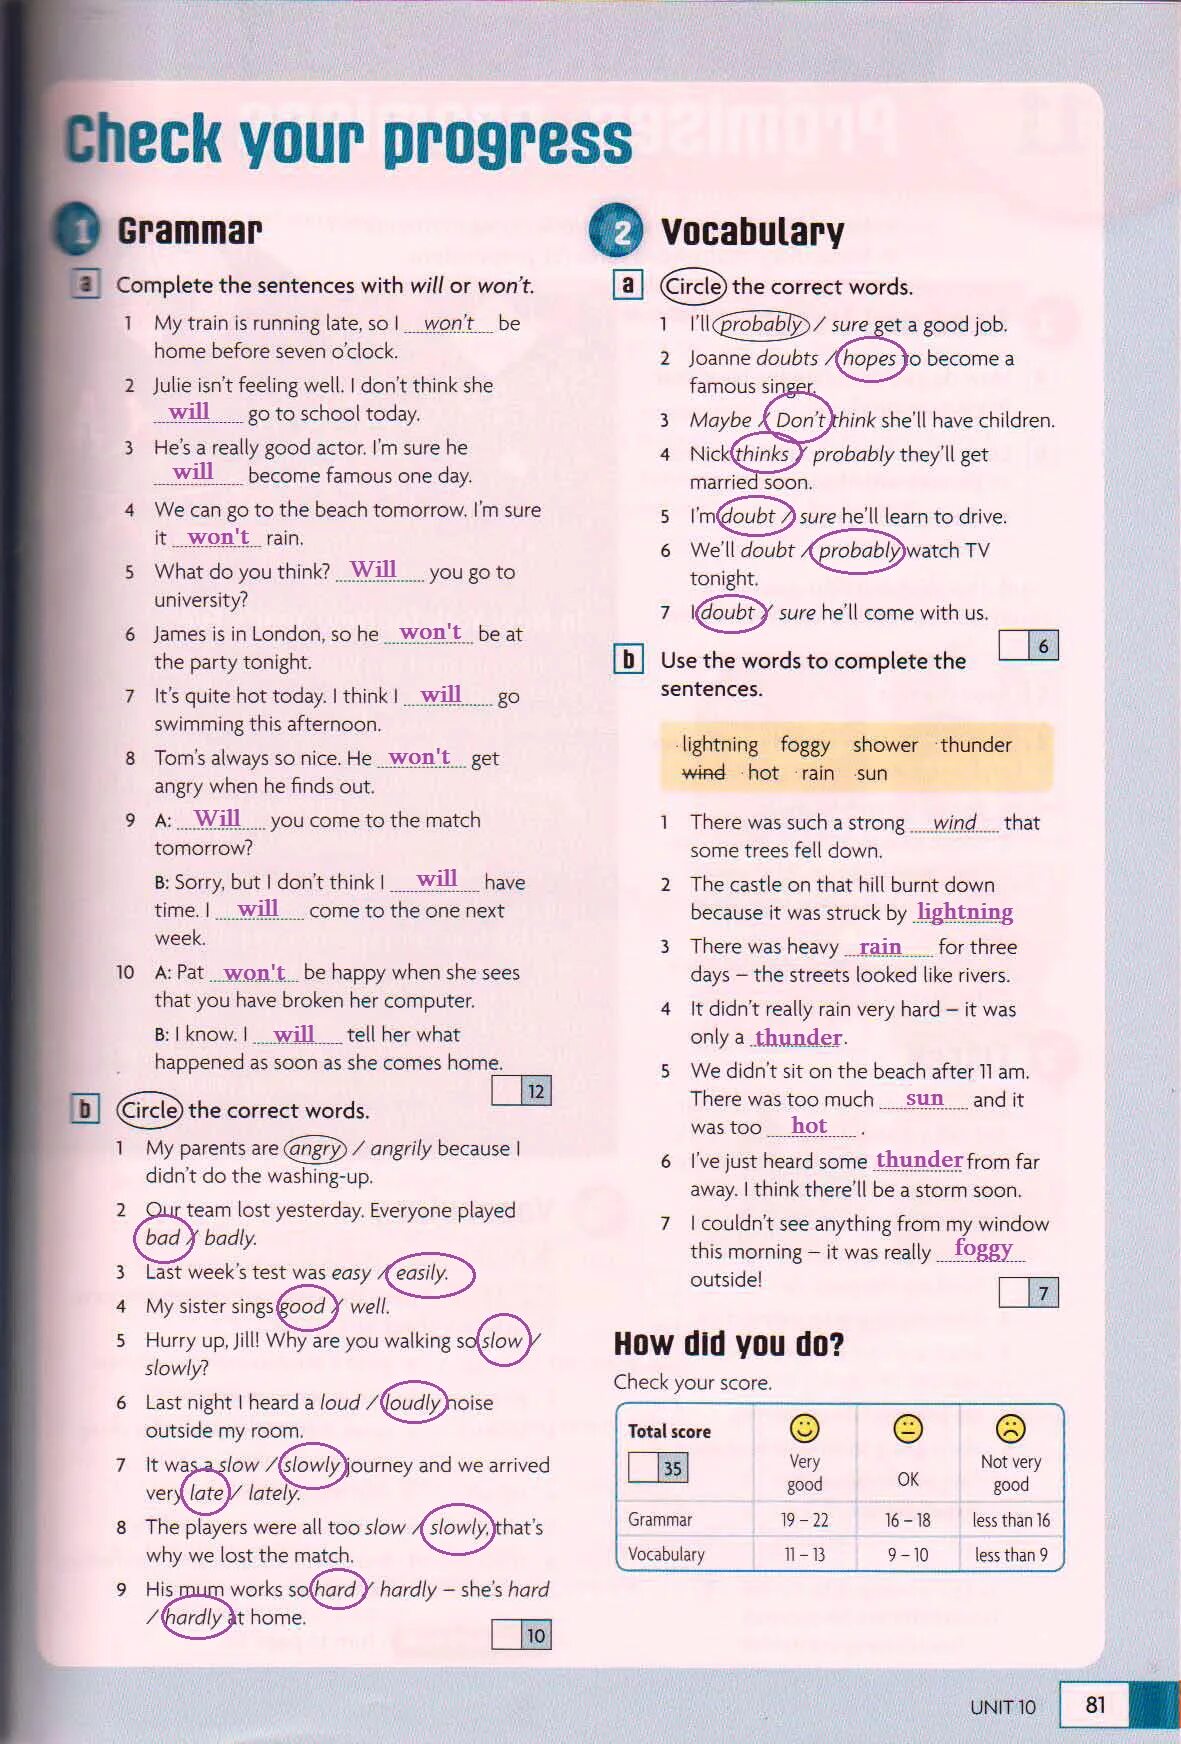 Check your progress
1 Grammar
a Complete the sentences with will or won't.
1 My train is running late, so I won't be
home before seven o'clock.
2 Julie isn't feeling well. I don't think she
will go to school today.
3 He's a really good actor. I'm sure he
will become famous one day.
4 We can go to the beach tomorrow. I'm sure
it won't rain.
5 What do you think? Will you go to
university?
6 James is in London, so he won't be at
the party tonight.
7 It's quite hot today. I think I will go
swimming this afternoon.
8 Tom's always so nice. He won't get
angry when he finds out.
9 A: Will you come to the match
tomorrow?
B: Sorry, but I don't think I will have
time. I will come to the one next
week.
10 A: Pat won't be happy when she sees
that you have broken her computer.
B: I know. I will tell her what
happened as soon as she comes home.
12
b Circle the correct words.
1 My parents are angry / angrily because I
didn't do the washing-up.
2 Our team lost yesterday. Everyone played
bad / badly.
3 Last week's test was easy / easily.
4 My sister sings good / well.
5 Hurry up, Jill! Why are you walking so slow /
slowly?
6 Last night I heard a loud / loudly noise
outside my room.
7 It was a slow / slowly journey and we arrived
very late / lately.
8 The players were all too slow / slowly, that's
why we lost the match.
9 His mum works so hard / hardly – she's hard
/ hardly at home.
10
2 Vocabulary
a Circle the correct words.
1 I'll probably / sure get a good job.
2 Joanne doubts / hopes to become a
famous singer.
3 Maybe / Don't think she'll have children.
4 Nick thinks / probably they'll get
married soon.
5 I'm doubt / sure he'll learn to drive.
6 We'll doubt / probably watch TV
tonight.
7 I doubt / sure he'll come with us.
6
b Use the words to complete the
sentences.
lightning foggy shower thunder
wind hot rain sun
1 There was such a strong wind that
some trees fell down.
2 The castle on that hill burnt down
because it was struck by lightning
3 There was heavy rain for three
days – the streets looked like rivers.
4 It didn't really rain very hard – it was
only a thunder.
5 We didn't sit on the beach after 11 am.
There was too much sun and it
was too hot .
6 I've just heard some thunder from far
away. I think there'll be a storm soon.
7 I couldn't see anything from my window
this morning – it was really foggy
outside!
7
How did you do?
Check your score.
Total score
35
Very
good
OK
Not very
good
Grammar 19 – 22 16 – 18 less than 16
Vocabulary 11 – 13 9 – 10 less than 9
UNIT 10 81